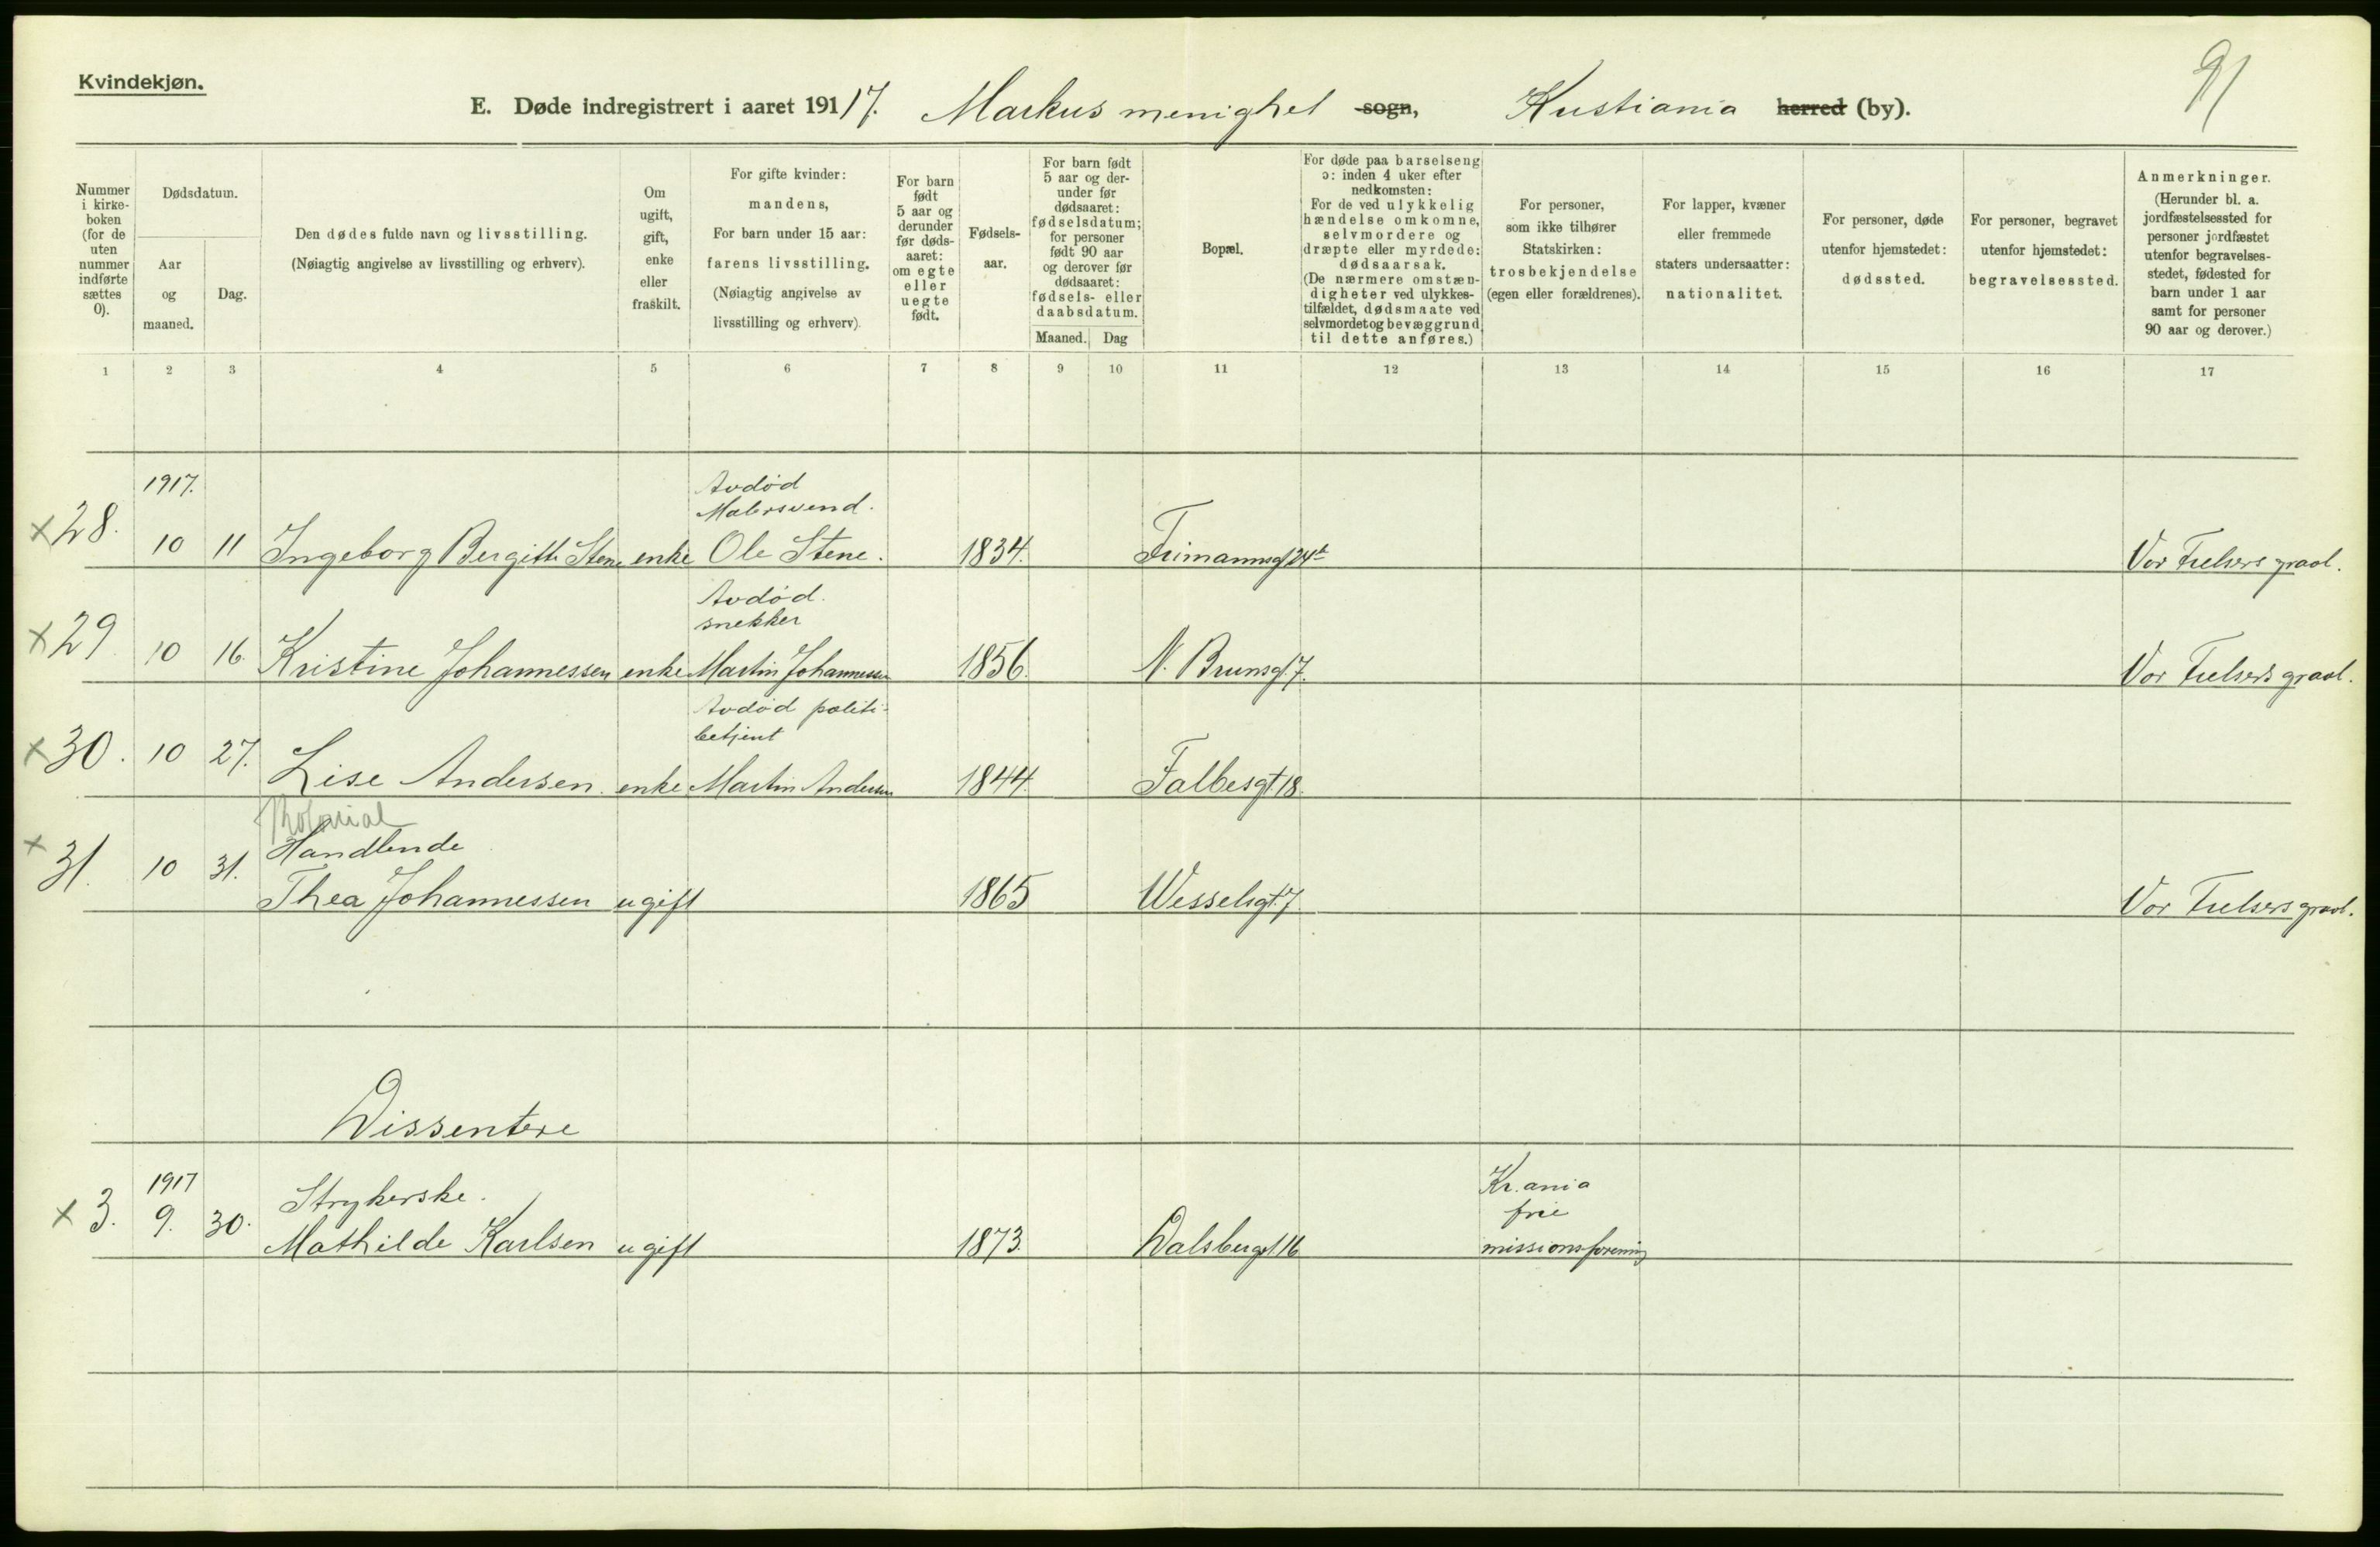 Kvindekjøn.
91
E. Døde indregistrert i aaret 19117. Markus menighet sogn, Kristiania herred (by).
Nummer i kirke-boken (for de uten nummer indførte sættes 0).
Dødsdatum.
Aar og maaned.
Dag.
Den dødes fulde navn og livsstilling.
(Nøiagtig angivelse av livsstilling og erhverv).
Om ugift, gift, enke eller fraskilt.
For gifte kvinder:
mandens,
For barn under 15 aar:
farens livsstilling.
(Nøiagtig angivelse av
livsstilling og erhverv).
For barn født 5 aar og derunder før døds-aaret: om egte eller uegte født.
Fødsels-aar.
For barn født 5 aar og der-under før dødsaaret: fødselsdatum; for personer født 90 aar og derover før dødsaaret: fødsels- eller daabsdatum.
Maaned. Dag
Bopæl.
For døde paa barselseng
ɔ: inden 4 uker efter
nedkomsten:
For de ved ulykkelig
hændelse omkomne,
selvmordere og
dræpte eller myrdede:
dødsaarsak.
(De nærmere omstæn-
digheter ved ulykkes-
tilfældet, dødsmaate ved
selvmordet og bevæggrund
til dette anføres.)
For personer,
som ikke tilhører
Statskirken:
trosbekjendelse
(egen eller forældrenes).
For lapper, kvæner
eller fremmede
staters undersaatter:
nationalitet.
For personer, døde
utenfor hjemstedet:
dødssted.
For personer, begravet
utenfor hjemstedet:
begravelsessted.
Anmerkninger.
(Herunder bl. a.
jordfæstelsessted for
personer jordfæstet
utenfor begravelses-
stedet, fødested for
barn under 1 aar
samt for personer
90 aar og derover.)
1 2 3 4 5 6 7 8 9 10 11 12 13 14 15 16 17
1917.
Avdød
Malersvend.
x 28. 10 11 Ingeborg Bergitte Stene enke Ole Stene. 1834. Frimannsgt 24b Vor Frelsers gravl.
Avdød.
snekker
x 29 10 16. Kristine Johannessen enke Martin Johannessen 1856. N. Brunsgt. 7. Vor Frelsers gravl.
Avdød politi-
betjent
x 30. 10 27. Lise Andersen. enke Martin Andersen 1844. Falbesgt. 18.
Kolonial
Handlende
x 31. 10 31. Thea Johannessen ugift 1865 Wesselsgt. 7 Vor Frelsers gravl.
Dissentere
1917
Strykerske.
Kr.ania
frie
x 3. 9. 30. Mathilde Karlsen ugift 1873. Dalsbergst 16 missionsforening